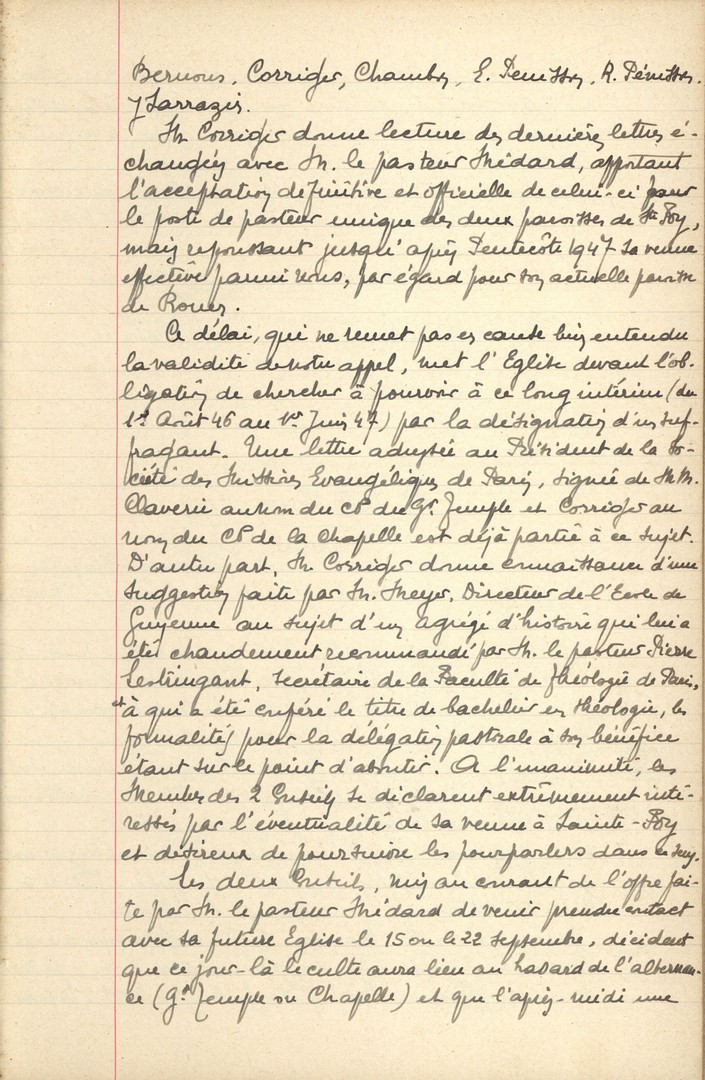 Bernous, Corriger, Chambon, E. Pénisson, R. Pénisson.
J Sarrazin.
M. Corriger donne lecture des dernières lettres é-
changées avec M. le pasteur Médard, apportant
l'acceptation définitive et officielle de celui-ci pour
le poste de pasteur unique des deux paroisses de Ste Foy,
mais repoussant jusqu'après Pentecôte 1947 sa venue
effective parmi nous, par égard pour son actuelle paroisse
de Rouen.
Ce délai, qui ne remet pas en cause bien entendu
la validité de notre appel, met l'Eglise devant l'ob-
ligation de chercher à pourvoir à ce long intérim (du
1er Août 46 au 1er Juin 47) par la désignation d'un suf-
fragant. Une lettre adressée au Président de la So-
ciété des Missions Evangéliques de Paris, signée de MM.
Claverie au nom du CP du Gd Temple et Corriger au
nom du CP de la Chapelle est déjà partie à ce sujet.
D'autre part, M. Corriger donne connaissance d'une
suggestion faite par M. Meyer, Directeur de l'Ecole de
Guyenne au sujet d'un agrégé d'histoire qui lui a
été chaudement recommandé par M. le pasteur Pierre
Lestringant, secrétaire de la Faculté de théologie de Paris,
et à qui a été conféré le titre de bachelier en théologie, les
formalités pour la délégation pastorale à son bénéfice
étant sur le point d'aboutir. A l'unanimité, les
Membres des 2 Conseils se déclarent extrêmement inté-
ressés par l'éventualité de sa venue à Sainte-Foy
et désireux de poursuivre les pourparlers dans ce sens.
Les deux Conseils, mis au courant de l'offre fai-
te par M. le pasteur Médard de venir prendre contact
avec sa future Eglise le 15 ou le 22 septembre, décident
que ce jour-là le culte aura lieu au hasard de l'alternan-
ce (Gd Temple ou Chapelle) et que l'après-midi une